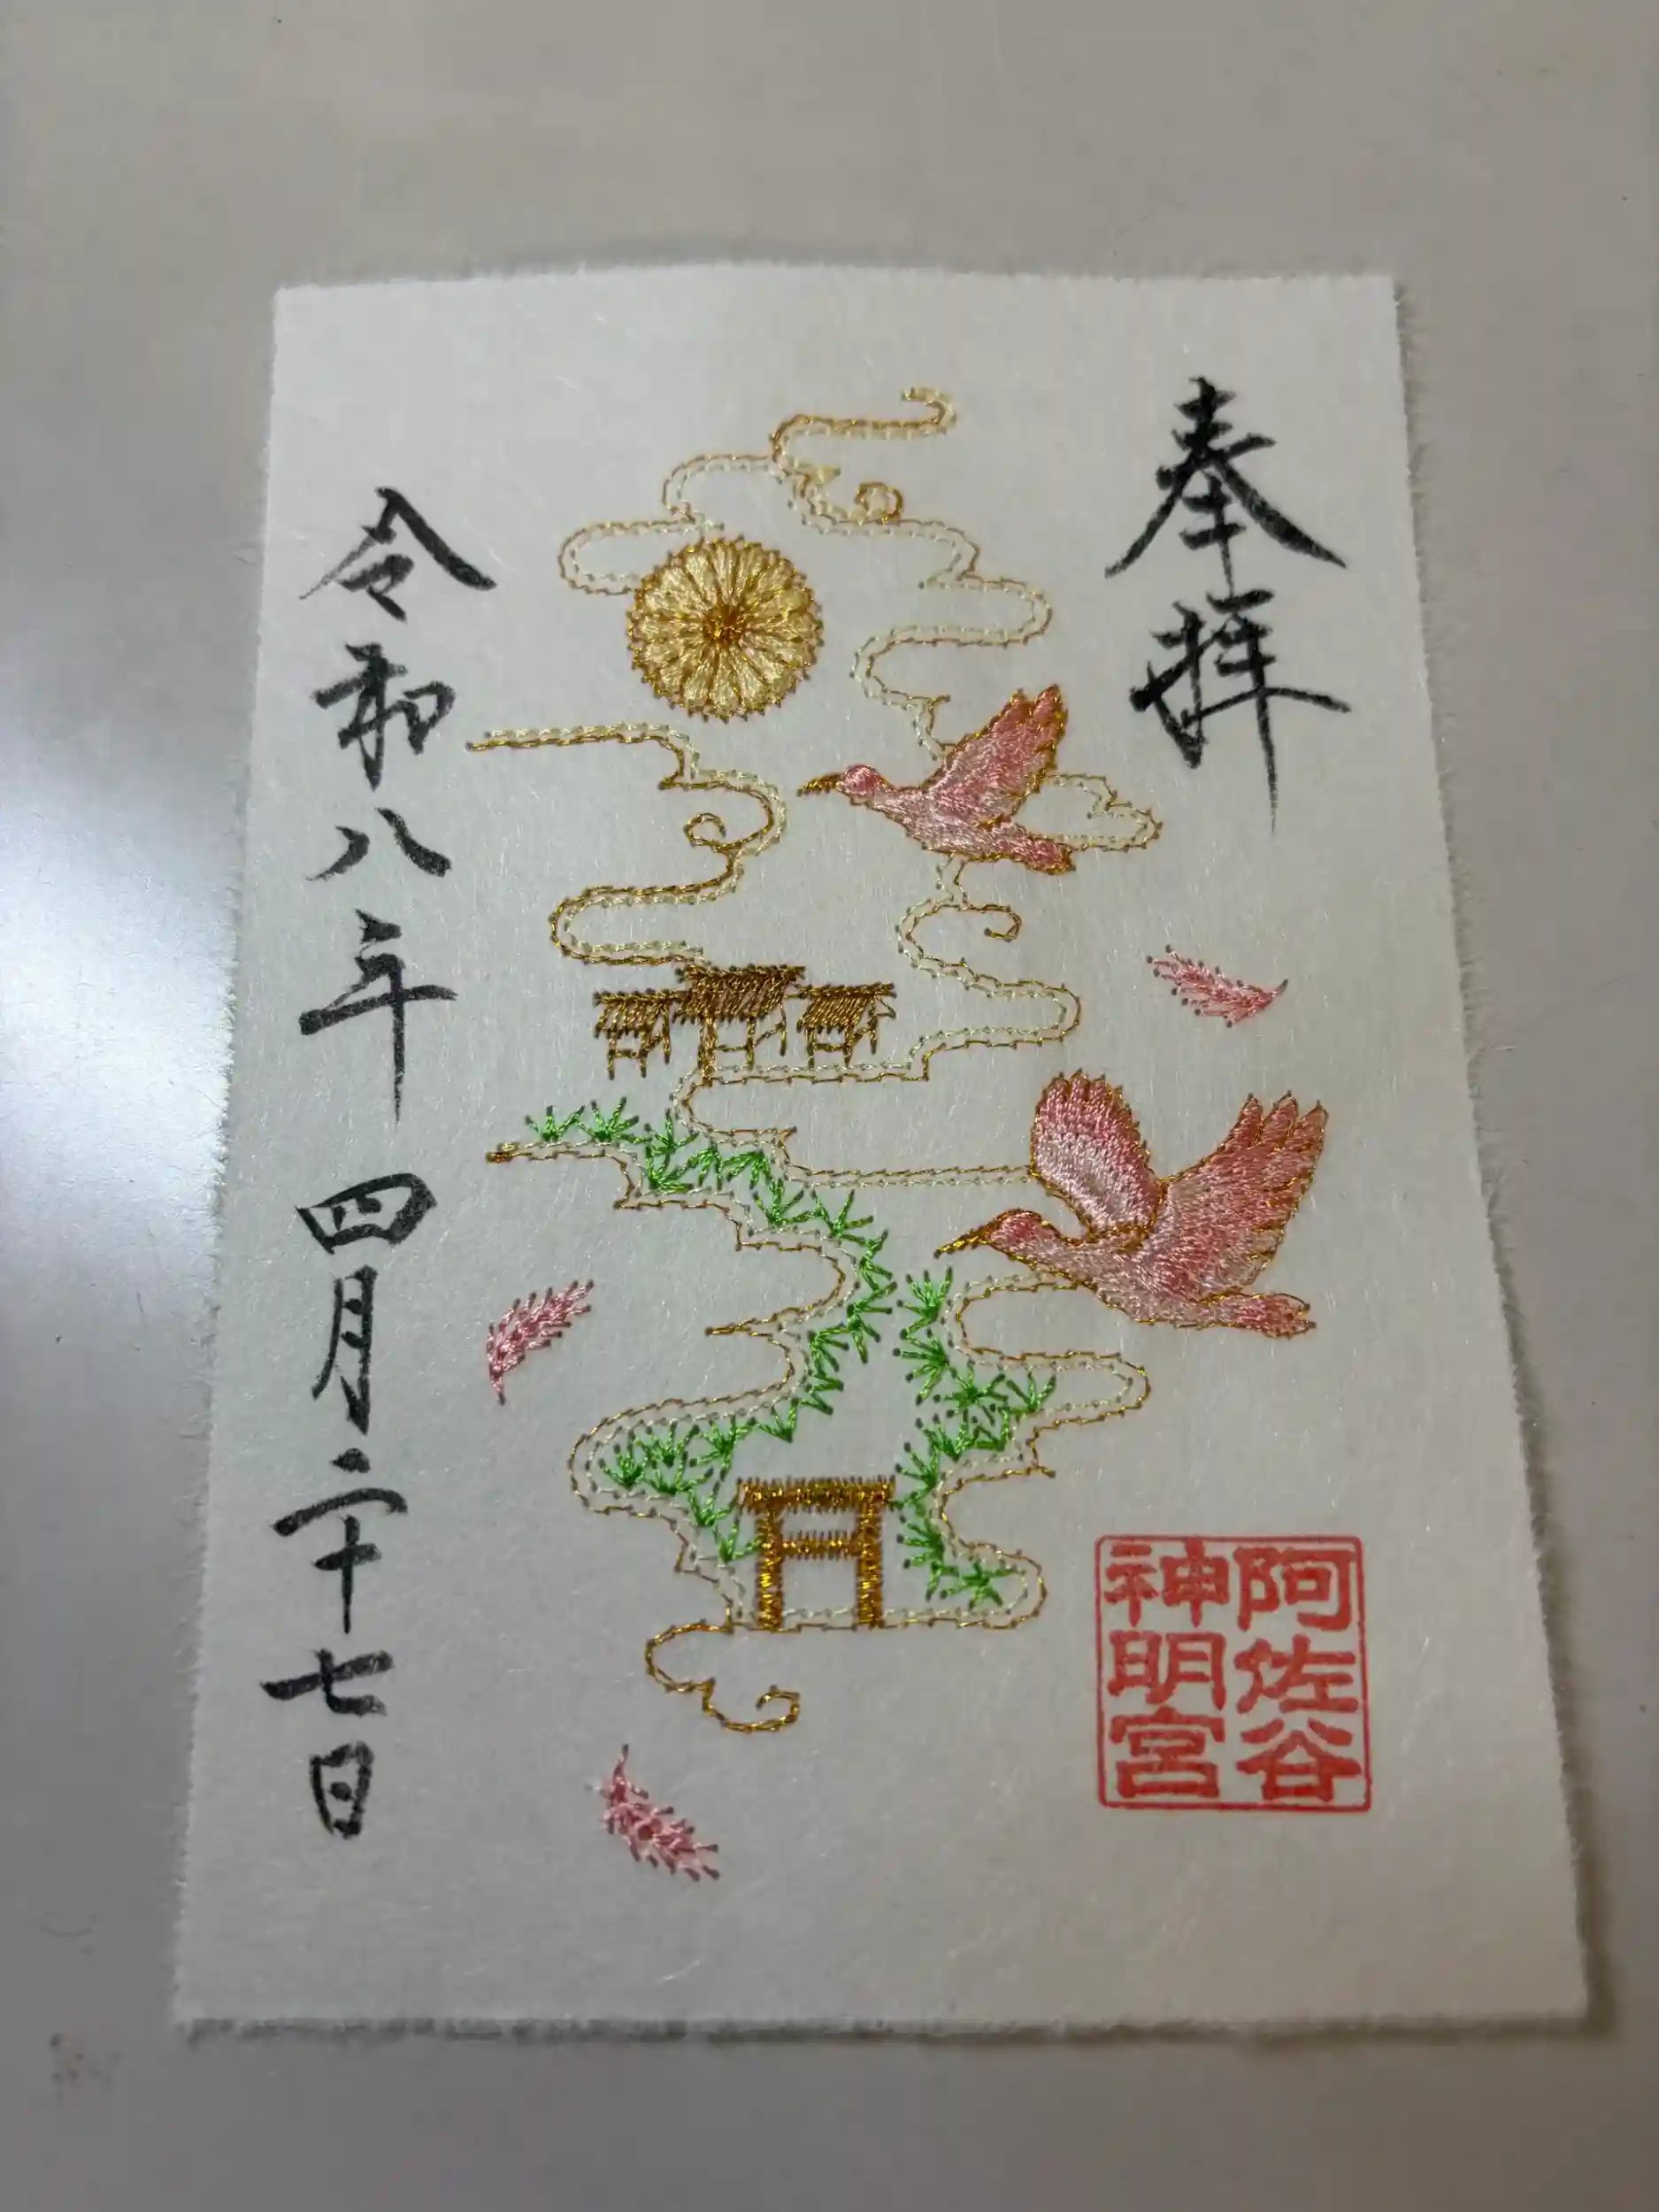 奉拝
阿佐谷
神明宮
令和八年 四月二十七日